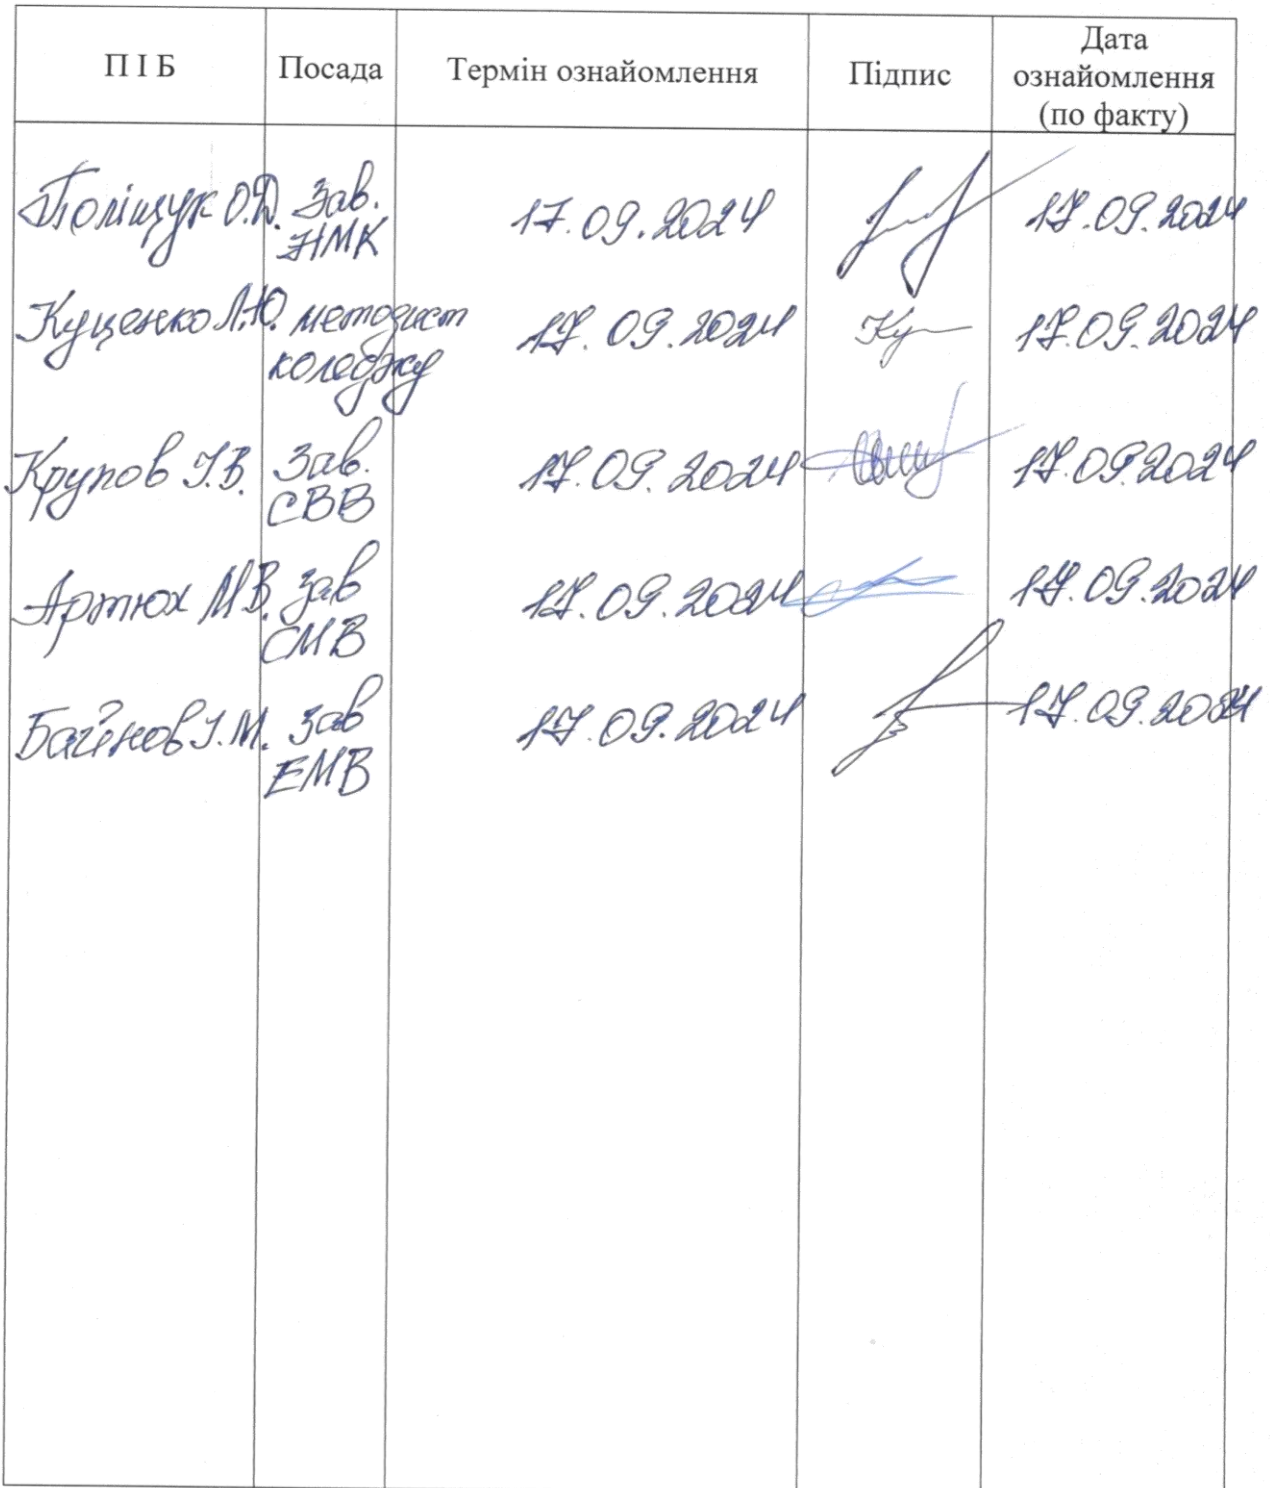 П І Б Посада Термін ознайомлення Підпис Дата ознайомлення (по факту)
Поліщук О.Д. Зав. 17.09.2024 17.09.2024
НМК
Куценко Л.Ю. методист 17.09.2024 Ку 17.09.2024
коледжу
Крупов І.В. Зав. 17.09.2024 17.09.2024
СВВ
Артюх М.В. Зав 17.09.2024 17.09.2024
СМВ
Баінов І.М. Зав 17.09.2024 17.09.2024
ЕМВ